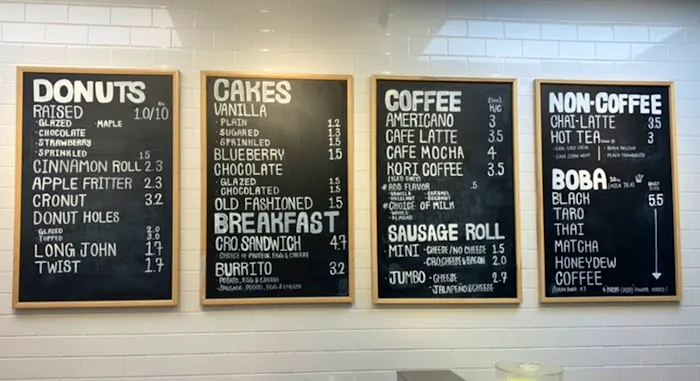 DONUTS
RAISED 1.0/10
· GLAZED · MAPLE
· CHOCOLATE
· STRAWBERRY
· SPRINKLED 1.5
CINNAMON ROLL 2.3
APPLE FRITTER 2.3
CRONUT 3.2
DONUT HOLES
· GLAZED 2.0
· TOPPED 3.0
LONG JOHN 1.7
TWIST 1.7
CAKES
VANILLA
· PLAIN 1.2
· SUGARED 1.3
· SPRINKLED 1.5
BLUEBERRY 1.5
CHOCOLATE
· GLAZED 1.5
· CHOCOLATED 1.5
OLD FASHIONED 1.5
BREAKFAST
CRO.SANDWICH 4.7
CHOICE OF PROTEIN, EGG & CHEESE
BURRITO 3.2
· POTATO, EGG & CHEESE
· SAUSAGE, POTATO, EGG & CHEESE
COFFEE H/C
AMERICANO 3
CAFE LATTE 3.5
CAFE MOCHA 4
KORI COFFEE 3.5
(ICED ONLY)
*ADD FLAVOR .5
· VANILLA · CARAMEL
· HAZELNUT · COCONUT
*CHOICE OF MILK
· WHOLE
· ALMOND
SAUSAGE ROLL
· MINI · CHEESE/NO CHEESE 1.5
· CRO.CHEESE & BACON 2.0
· JUMBO · CHEESE 2.7
· JALAPEÑO & CHEESE
NON-COFFEE
CHAI-LATTE 3.5
HOT TEA 3
BOBA (MILK TEA)
BLACK 5.5
TARO
THAI
MATCHA
HONEYDEW
COFFEE